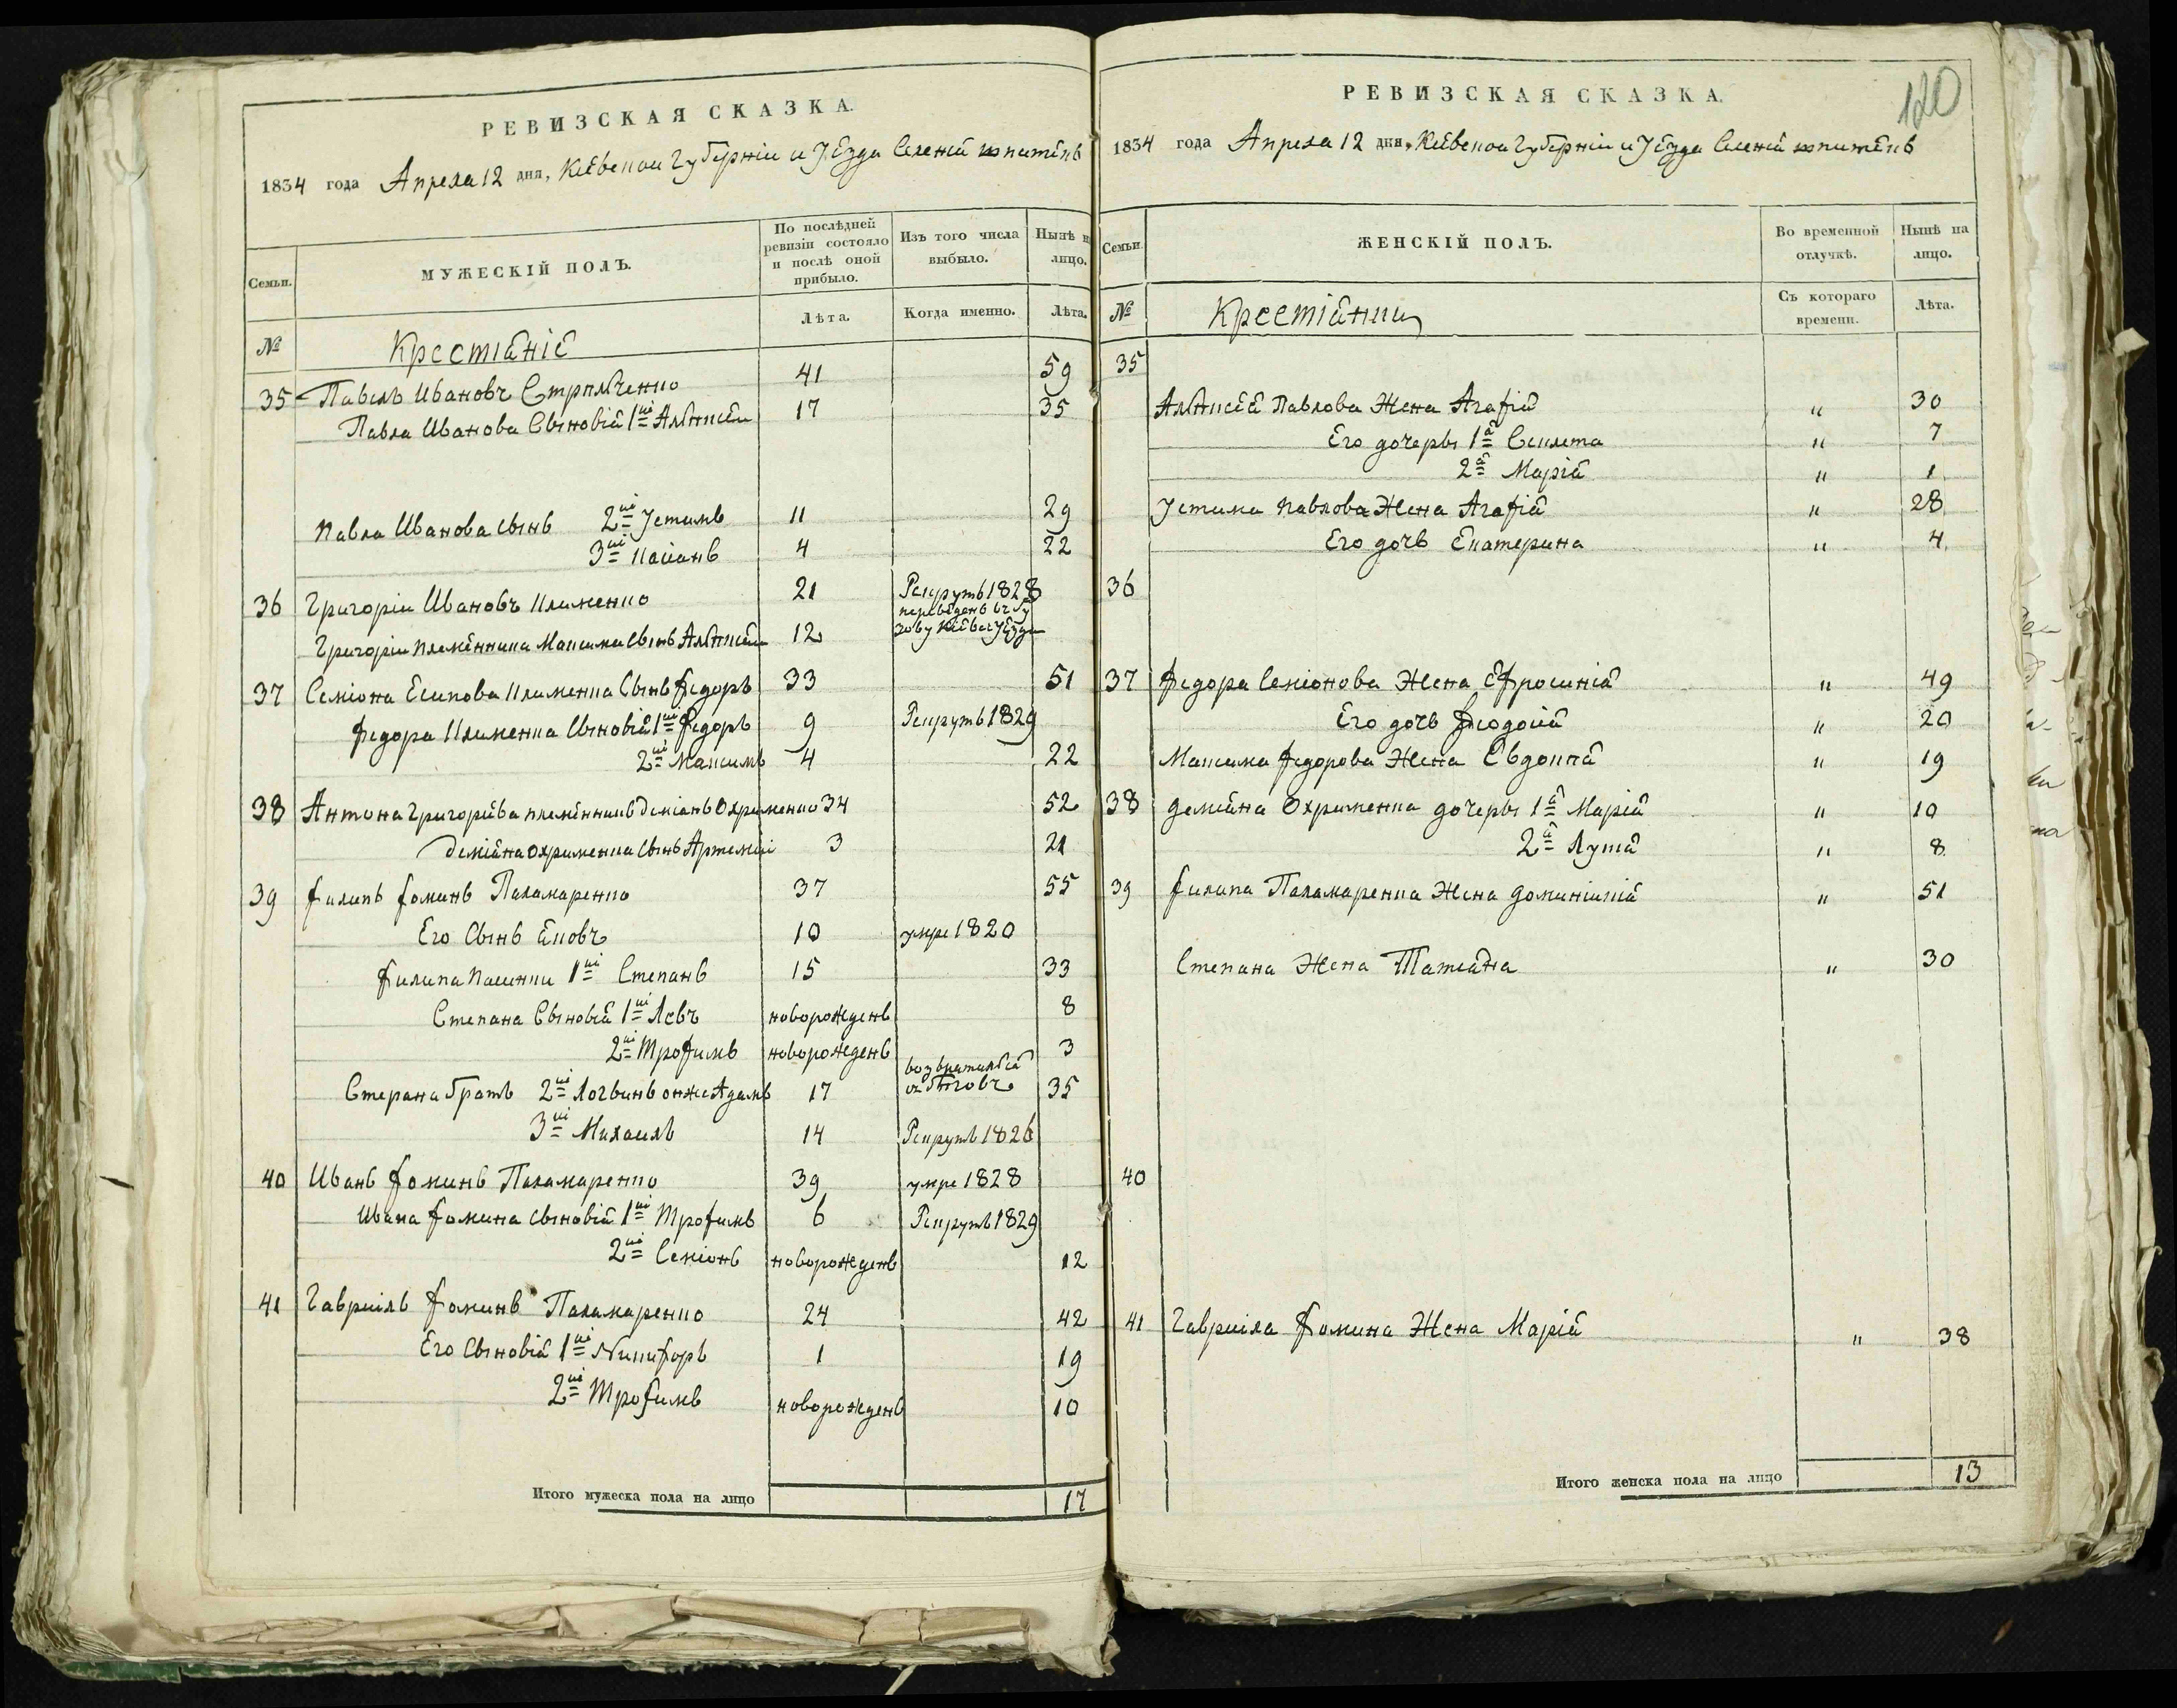 РЕВИЗСКАЯ СКАЗКА.
1834 года Апреля 12 дня, Киевской Губерніи и Уезда Селенія
Семьи.
МУЖЕСКІЙ ПОЛЪ.
По послѣдней ревизіи состояло и послѣ оной прибыло.
Изъ того числа выбыло.
Нынѣ на лицо.
№
Лѣта.
Когда именно.
Лѣта.
Крестіяніе
35 Павелъ Ивановъ 41 59
Павла Иванова Сыновія 1й Алѣксей 17 35
Павла Иванова сынъ 2й Устимъ 11 29
3й 4 22
36 Григоріи Ивановъ Клименко 21 Рекрутъ 1828
Григоріи племѣнника Максима сынъ Алѣксеи 12 переведенъ въ Уезда
37 Семіона Есипова Клименка Сынъ Федоръ 33 51
Федора Клименка Сыновія 1й Федоръ 9 Рекрутъ 1829
2й Максимъ 4 22
38 Антона Григоріева племѣнникъ Деміанъ Охрименко 34 52
Деміяна Охрименка сынъ Артемій 3 21
39 Филипъ Фоминъ Паламаренко 37 55
Его Сынъ Яковъ 10 умре 1820
Филипа Пасинки 1й Степанъ 15 33
Степана Сыновія 1й Левъ новорожденъ 8
2й Трофимъ новорожденъ 3
Степана братъ 2й Логвинъ онже Адамъ 17 возвратился съ бѣговъ 35
3й Михаилъ 14 Рекрутъ 1826
40 Иванъ Фоминъ Паламаренко 39 умре 1828
Ивана Фомина сыновія 1й Трофимъ 6 Рекрутъ 1829
2й Семіонъ новорожденъ 12
41 Гавріилъ Фоминъ Паламаренко 24 42
Его сыновія 1й Никифоръ 1 19
2й Трофимъ новорожденъ 10
Итого мужеска пола на лицо 17
120
РЕВИЗСКАЯ СКАЗКА.
1834 года Апреля 12 дня, Киевской Губерніи и Уезда Селенія
Семьи.
ЖЕНСКІЙ ПОЛЪ.
Во временной отлучкѣ.
Нынѣ на лицо.
№
Съ котораго времени.
Лѣта.
Крестіянки
35
Алѣксея Павлова Жена Агафія " 30
Его дочеры 1я " 7
2я Марія " 1
Устима Павлова Жена Агафія " 28
Его дочь Екатерина " 4
36
37 Федора Семіонова Жена Ефросинія " 49
Его дочь Феодосія " 20
Максима Федорова Жена Евдокія " 19
38 Деміяна Охрименка дочеры 1я Марія " 10
2я " 8
39 Филипа Паламаренка Жена " 51
Степана Жена Татіяна " 30
40
41 Гавріила Фомина Жена Марія " 38
Итого женска пола на лицо 13